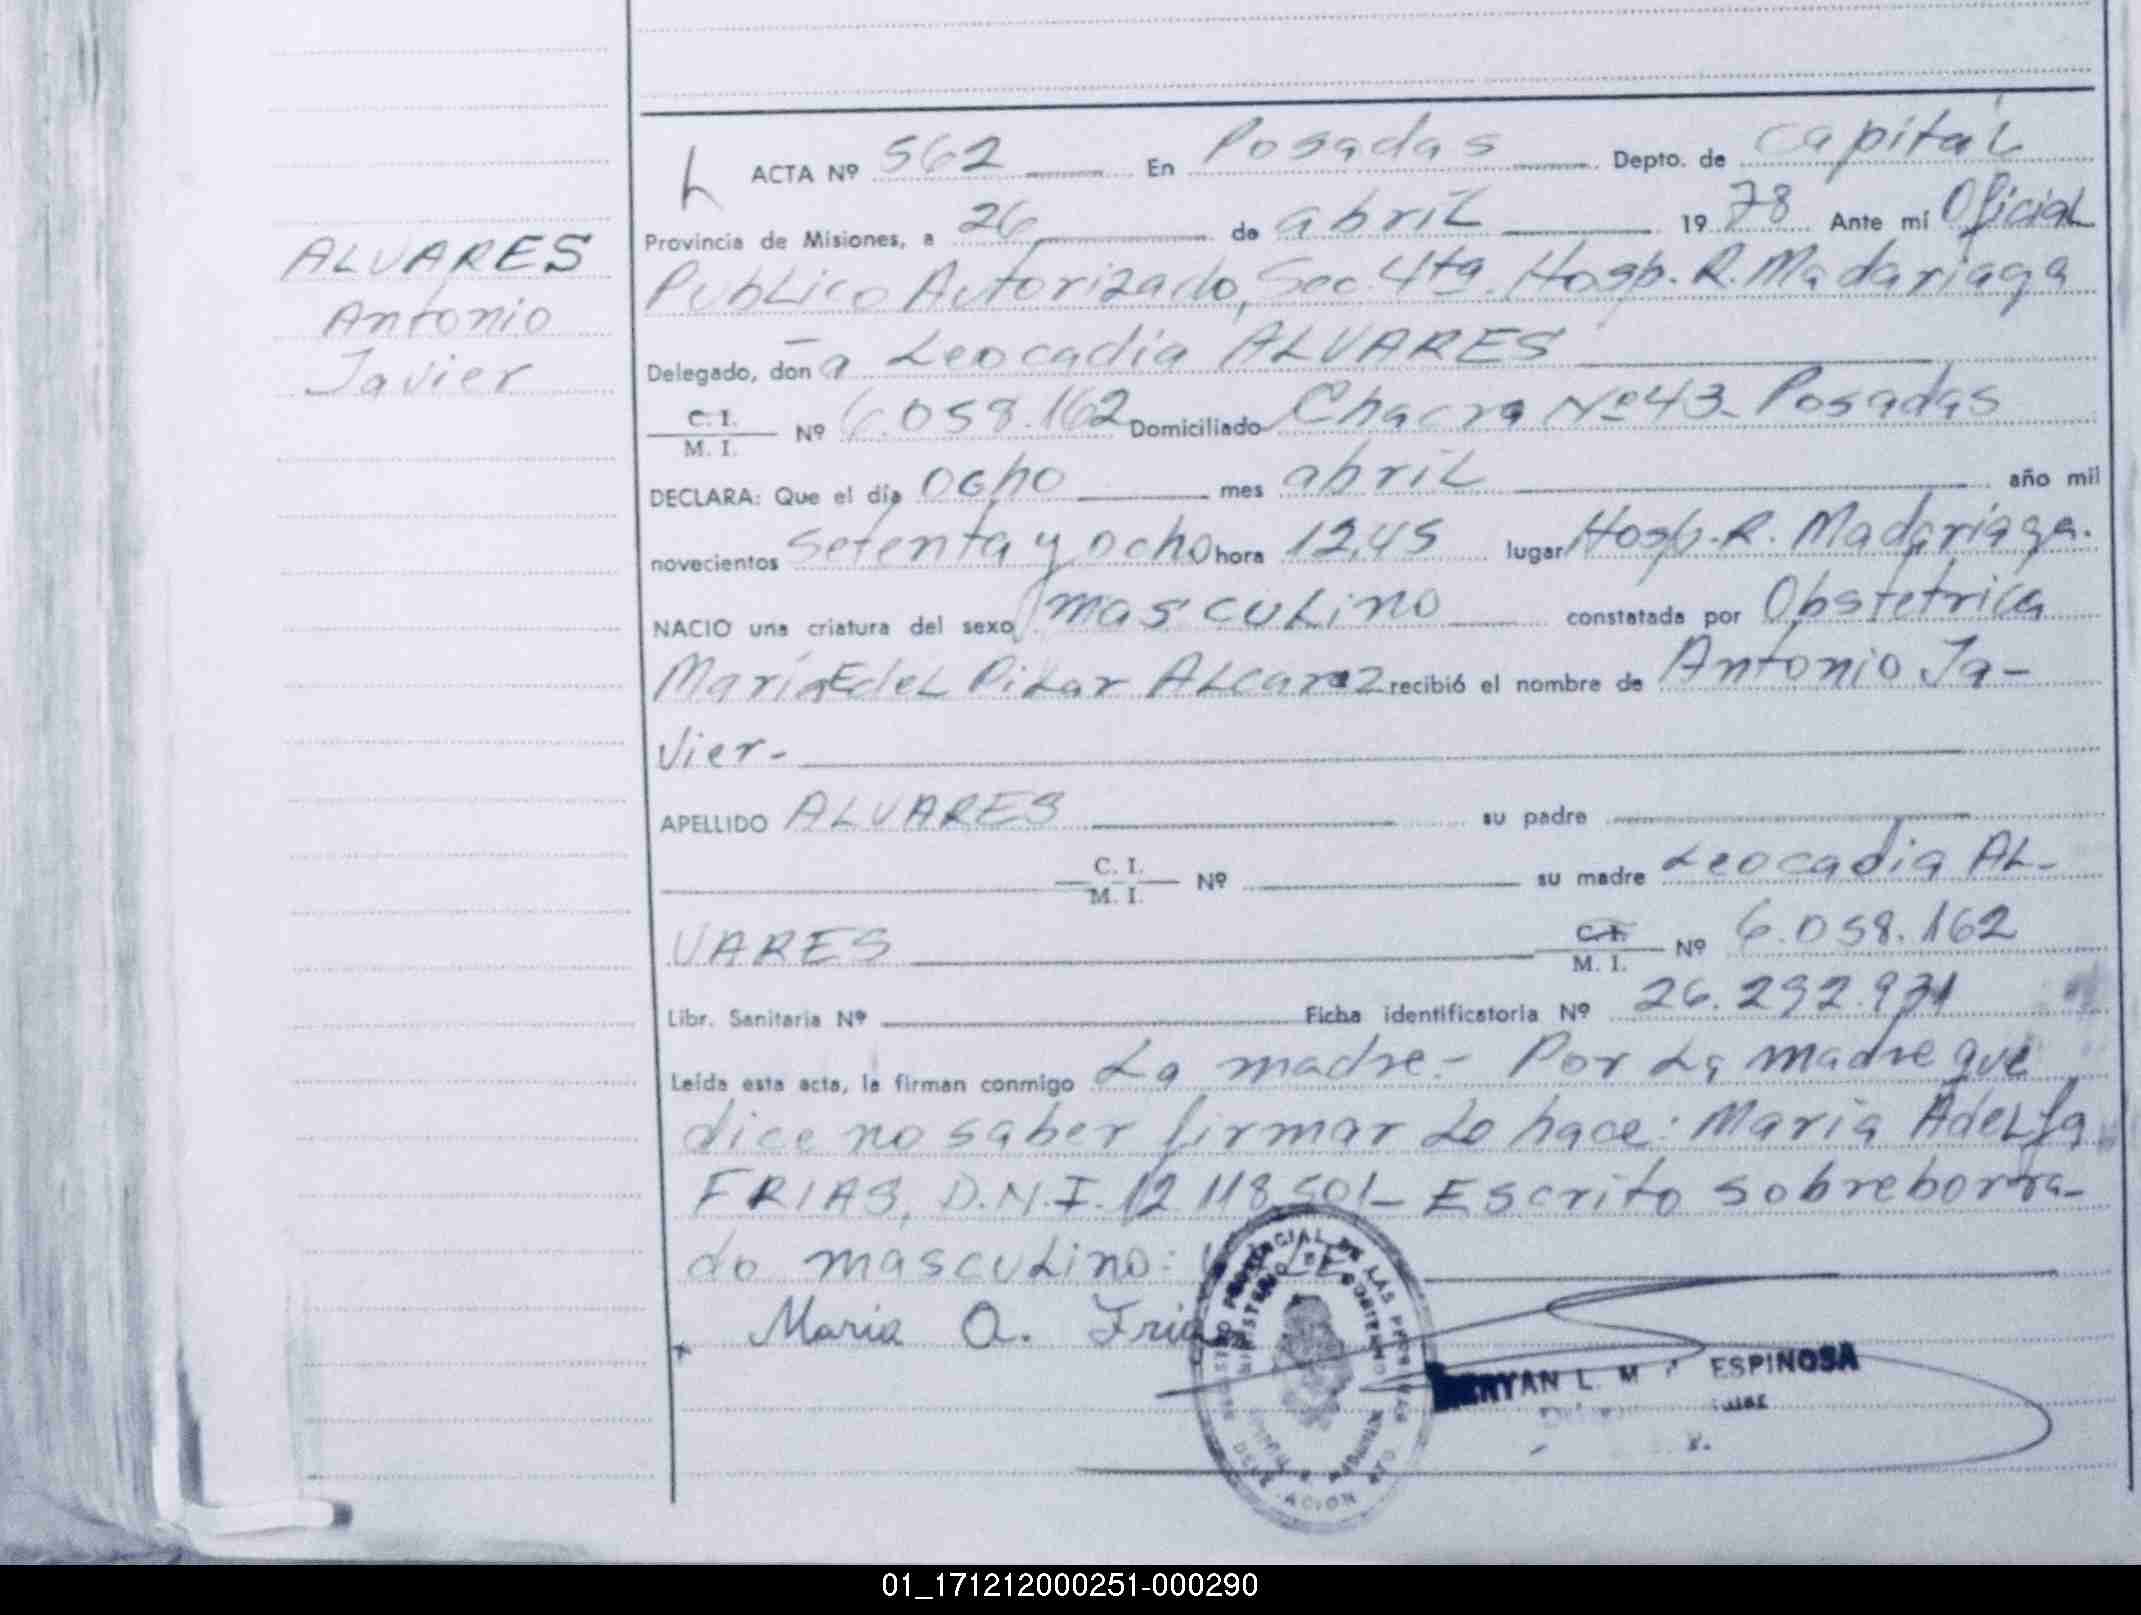 ALVARES
Antonio
Javier
ACTA Nº 562 En Posadas Depto. de Capital
Provincia de Misiones, a 26 de abril 1978 Ante mí Oficial
Publico Autorizado, Sec. 4ta. Hosp. R. Madariaga
Delegado, don a Leocadia ALVARES
C. I.
M. I. Nº 6.058.162 Domiciliado Chacra Nº 43- Posadas
DECLARA: Que el día ocho mes abril año mil
novecientos setenta y ocho hora 12,45 lugar Hosp. R. Madariaga.
NACIO una criatura del sexo masculino constatada por Obstetrica
María Edel Pilar ALcaraz recibió el nombre de Antonio Ja-
vier-
APELLIDO ALVARES su padre
C. I.
M. I. Nº su madre Leocadia AL-
VARES C. I.
M. I. Nº 6.058.162
Libr. Sanitaria Nº Ficha identificatoria Nº 26.292.931
Leída esta acta, la firman conmigo La madre.- Por La madre que
dice no saber firmar Lo hace: Maria Adelfa
FRIAS, D.N.I. 12.118.501- Escrito sobreborra-
do masculino: VALE
Maria A. Frias
ESPINOSA
01_171212000251-000290